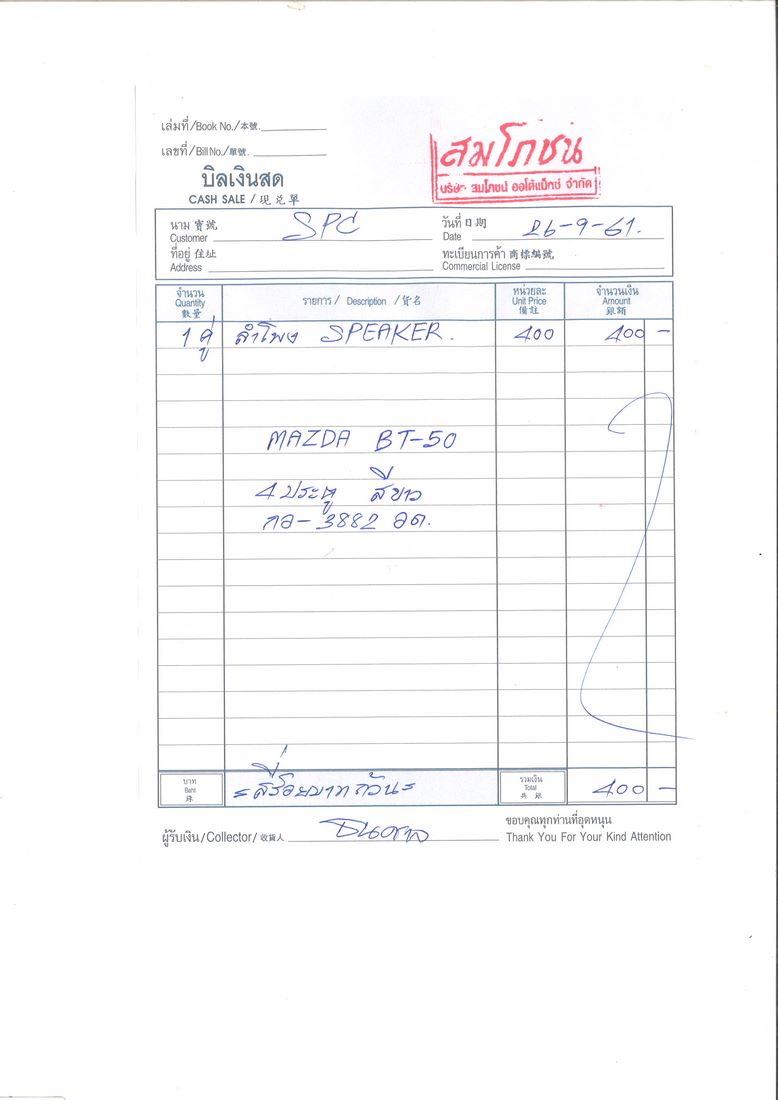 เล่มที่/Book No./本號.
เลขที่/Bill No./單號.
สมโภชน์
บริษัท สมโภชน์ ออโต้แม็กซ์ จำกัด
บิลเงินสด
CASH SALE / 現兑單
นาม 寶號 SPC
Customer
วันที่ 日期 26-9-61.
Date
ที่อยู่ 住址
Address
ทะเบียนการค้า 商標編號
Commercial License
จำนวน รายการ / Description / 貨名 หน่วยละ จำนวนเงิน
Quantity Unit Price Amount
數量 備註 銀額
1 คู่ ลำโพง SPEAKER. 400 400 -
MAZDA BT-50
4 ประตู สีขาว
กอ-3882 อต.
บาท =สี่ร้อยบาทถ้วน= รวมเงิน 400 -
Baht Total
銖 共銀
ผู้รับเงิน/Collector/收貨人
ขอบคุณทุกท่านที่อุดหนุน
Thank You For Your Kind Attention